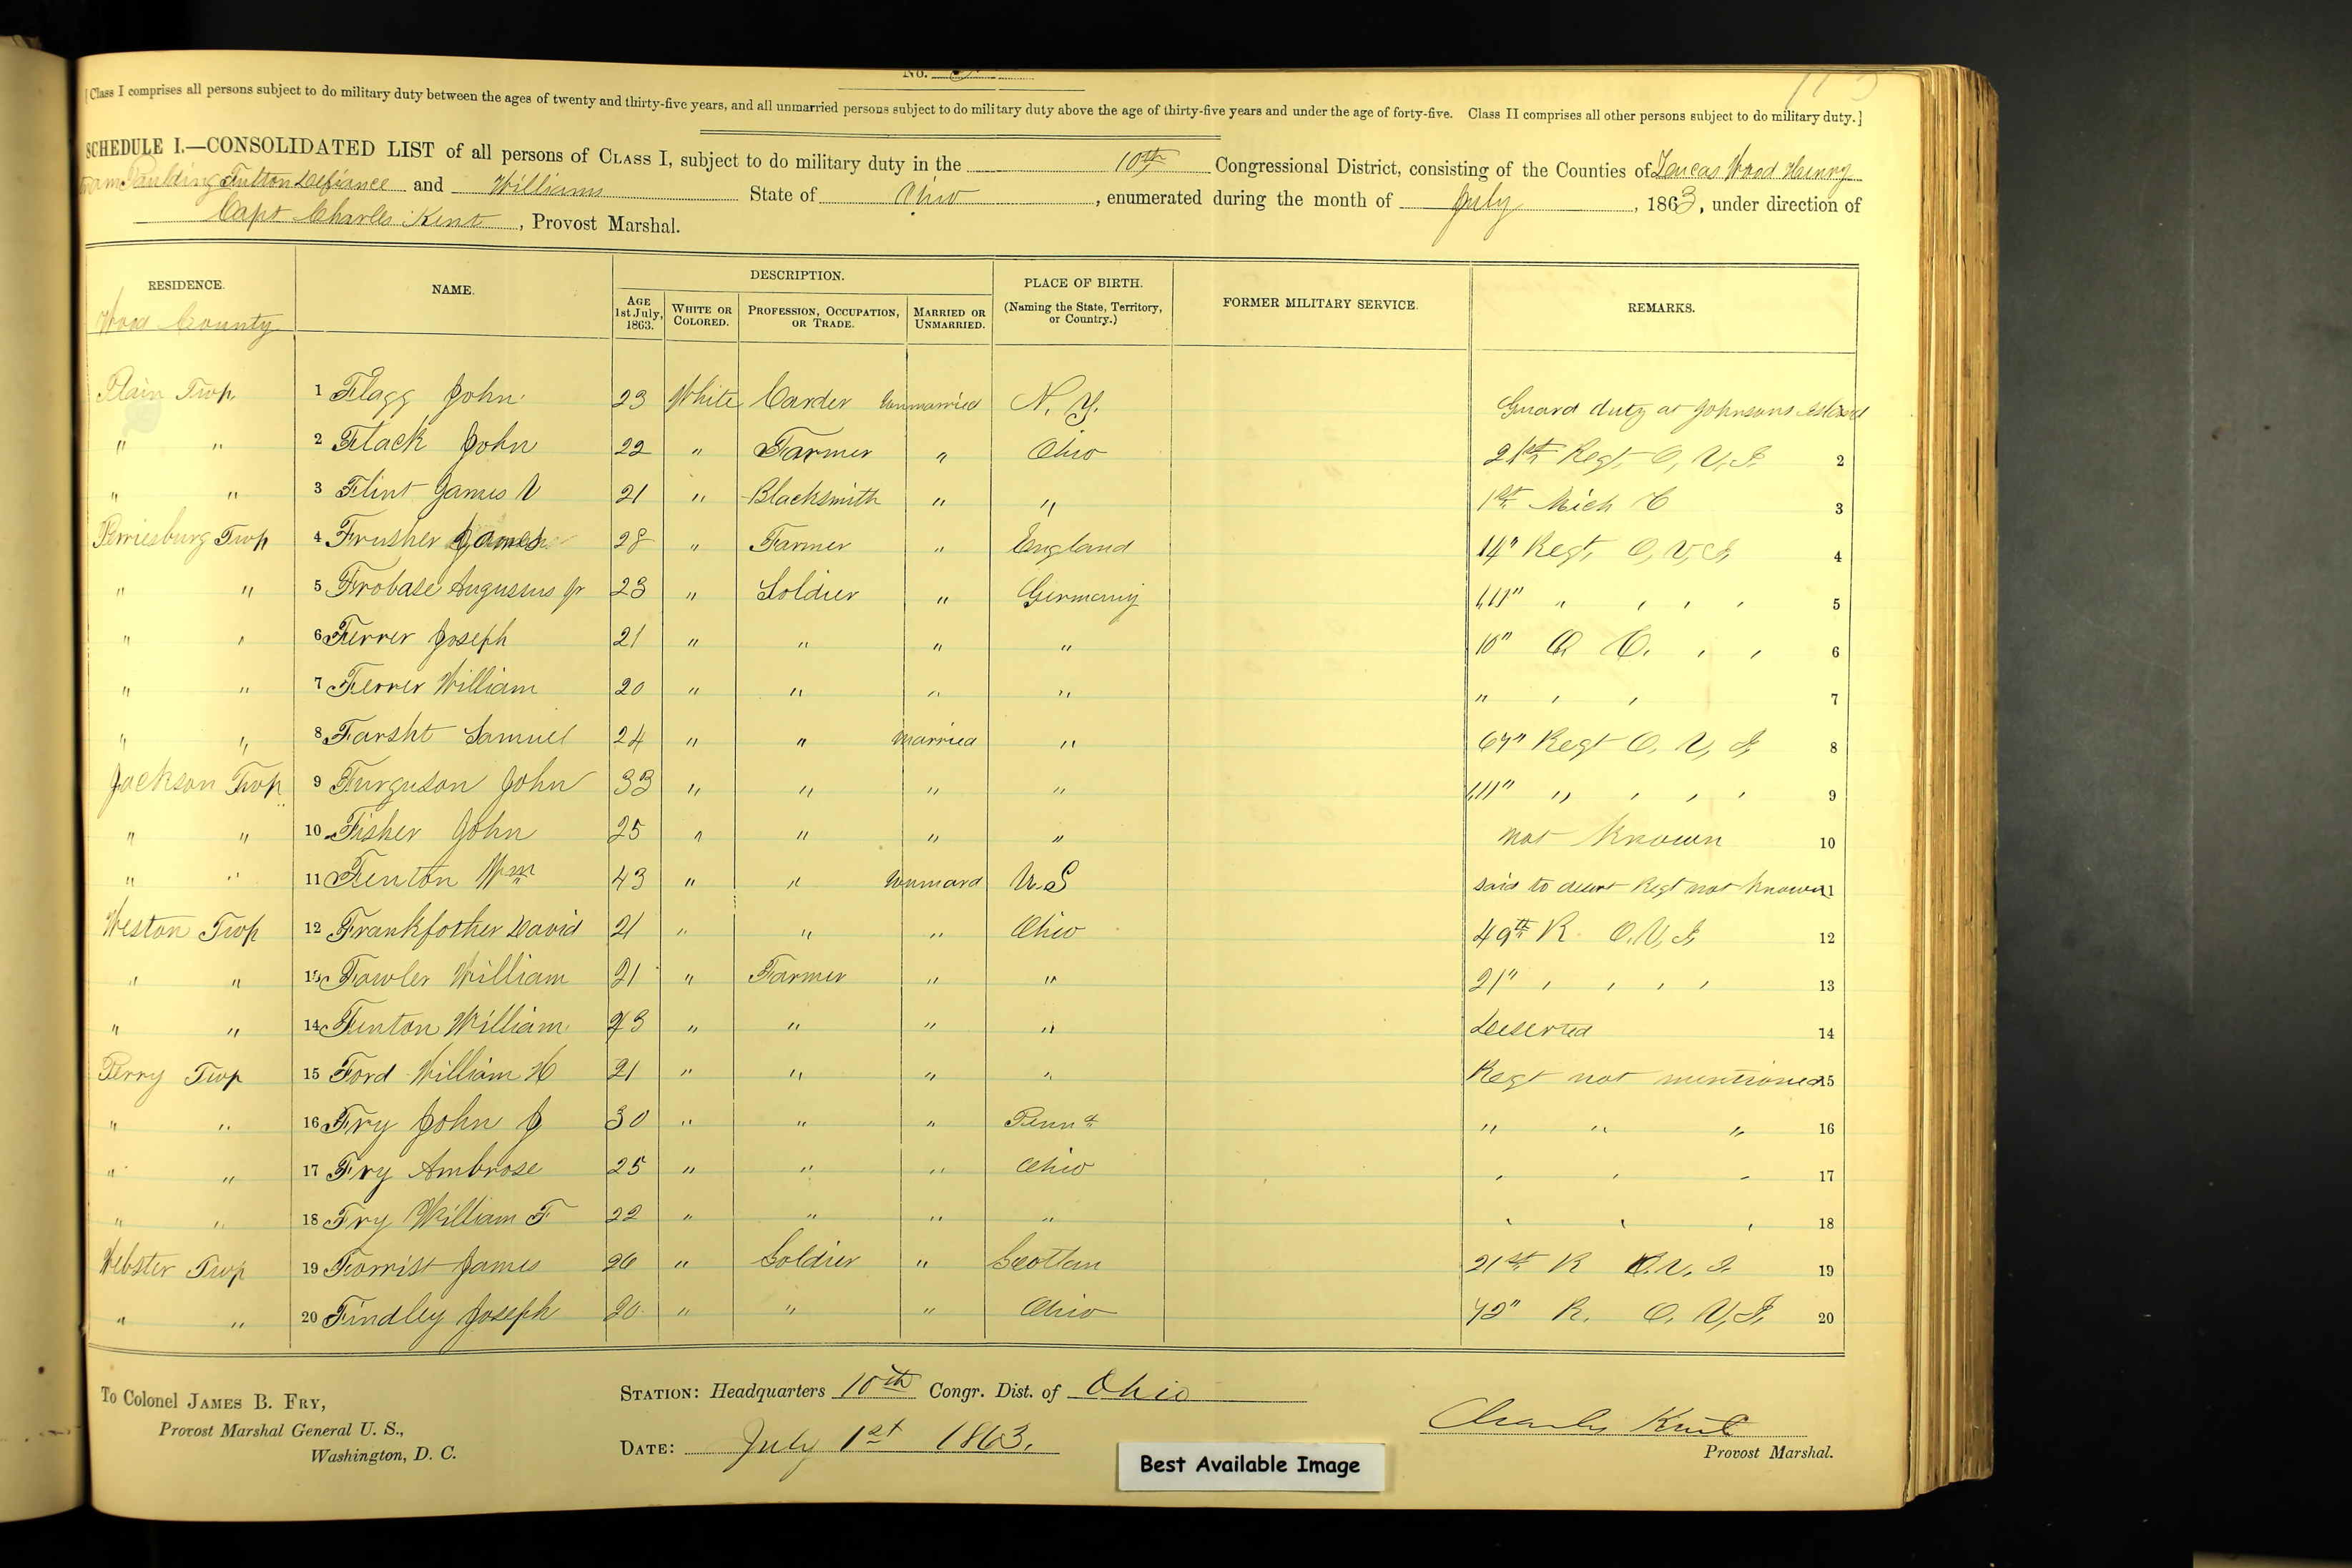 No.
[Class I comprises all persons subject to do military duty between the ages of twenty and thirty-five years, and all unmarried persons subject to do military duty above the age of thirty-five years and under the age of forty-five. Class II comprises all other persons subject to do military duty.]
SCHEDULE I.—CONSOLIDATED LIST of all persons of CLASS I, subject to do military duty in the 10th Congressional District, consisting of the Counties of Lucas Wood Henry
Paulding Fulton Defiance and Williams State of Ohio, enumerated during the month of July, 1863, under direction of
Capt Charles Kent, Provost Marshal.
RESIDENCE. NAME. DESCRIPTION. PLACE OF BIRTH. (Naming the State, Territory, or Country.) FORMER MILITARY SERVICE. REMARKS.
AGE 1st July, 1863. WHITE OR COLORED. PROFESSION, OCCUPATION, OR TRADE. MARRIED OR UNMARRIED.
Wood County
Plain Twp 1 Flagg John 23 White Carder Unmarried N. Y. Guard duty at Johnsons Island
" " 2 Flack John 22 " Farmer " Ohio 21st Regt O, V, I. 2
" " 3 Flint James V 21 " Blacksmith " " 1st Mich C 3
Perriesburg Twp 4 Frusher James 28 " Farmer " England 14" Regt, O, V, I, 4
" " 5 Frobase Augustus Jr 23 " Soldier " Germany " " " " 5
" " 6 Ferrer Joseph 21 " " " " 10" O. C. " " 6
" " 7 Ferrer William 20 " " " " " " " 7
" " 8 Farsht Samuel 24 " " Married " 67" Regt O. V, I, 8
Jackson Twp 9 Furguson John 33 " " " " " " " " 9
" " 10 Fisher John 25 " " " " not known 10
" " 11 Fenton Wm 43 " " Unmard U.S said to desert Regt not known 11
Weston Twp 12 Frankfother David 21 " " " Ohio 49th R. O. V, I, 12
" " 13 Fowler William 21 " Farmer " " 21" " " " " 13
" " 14 Fenton William 43 " " " " Deserted 14
Perry Twp 15 Ford William H 21 " " " " Regt not mentioned 15
" " 16 Fry John J 30 " " " Penna " " " 16
" " 17 Fry Ambrose 25 " " " Ohio " " " 17
" " 18 Fry William F 22 " " " " " " " 18
Webster Twp 19 Forrist James 26 " Soldier " Scotlan 21st R O. V. I. 19
" " 20 Findley Joseph 20 " " " Ohio 72" R. O. V, I, 20
To Colonel JAMES B. FRY,
Provost Marshal General U. S.,
Washington, D. C.
STATION: Headquarters 10th Congr. Dist. of Ohio
DATE: July 1st 1863.
Charles Kent
Provost Marshal.
Best Available Image